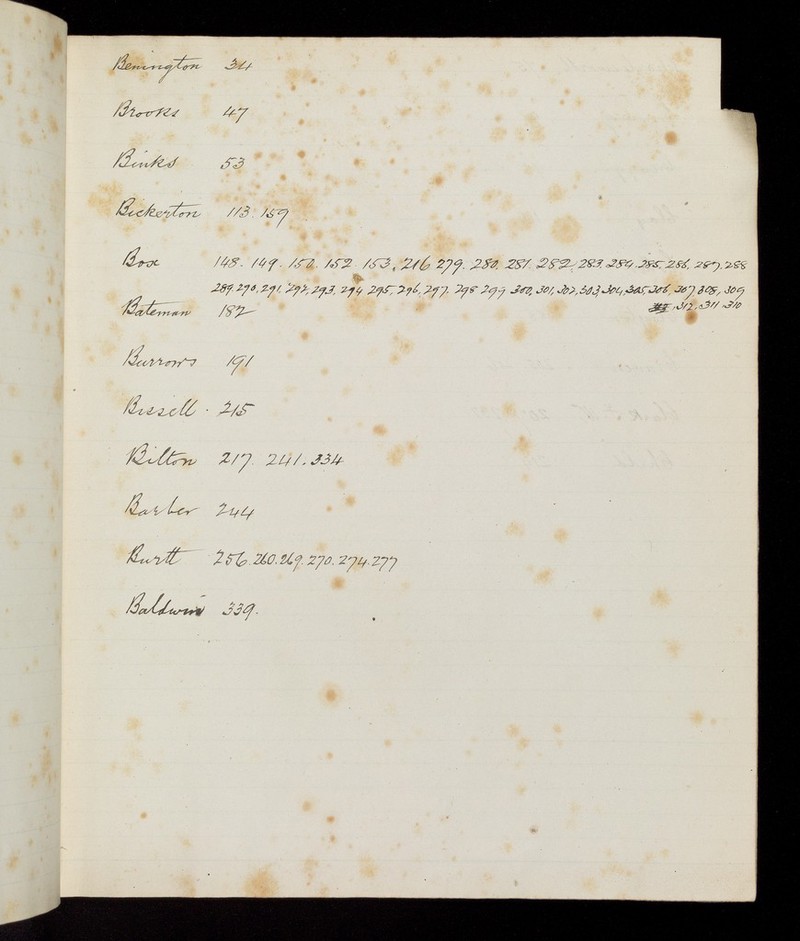 Benington 34
Brooks 47
Binks 53
Bickerton 113. 159
Box 148. 149. 150. 152. 153. 216 279. 280. 281. 282. 283. 284. 285. 286. 287. 288
289. 290. 291. 292. 293. 294 295. 296. 297. 298 299 300, 301, 302, 303, 304, 305, 306, 307, 308, 309
Bateman 182 312. 311. 310
Burrows 191
Bissell . 215
Bilton 217. 241. 334
Barber 244
Burtt 256. 260. 269. 270. 274. 277
Baldwin 339.